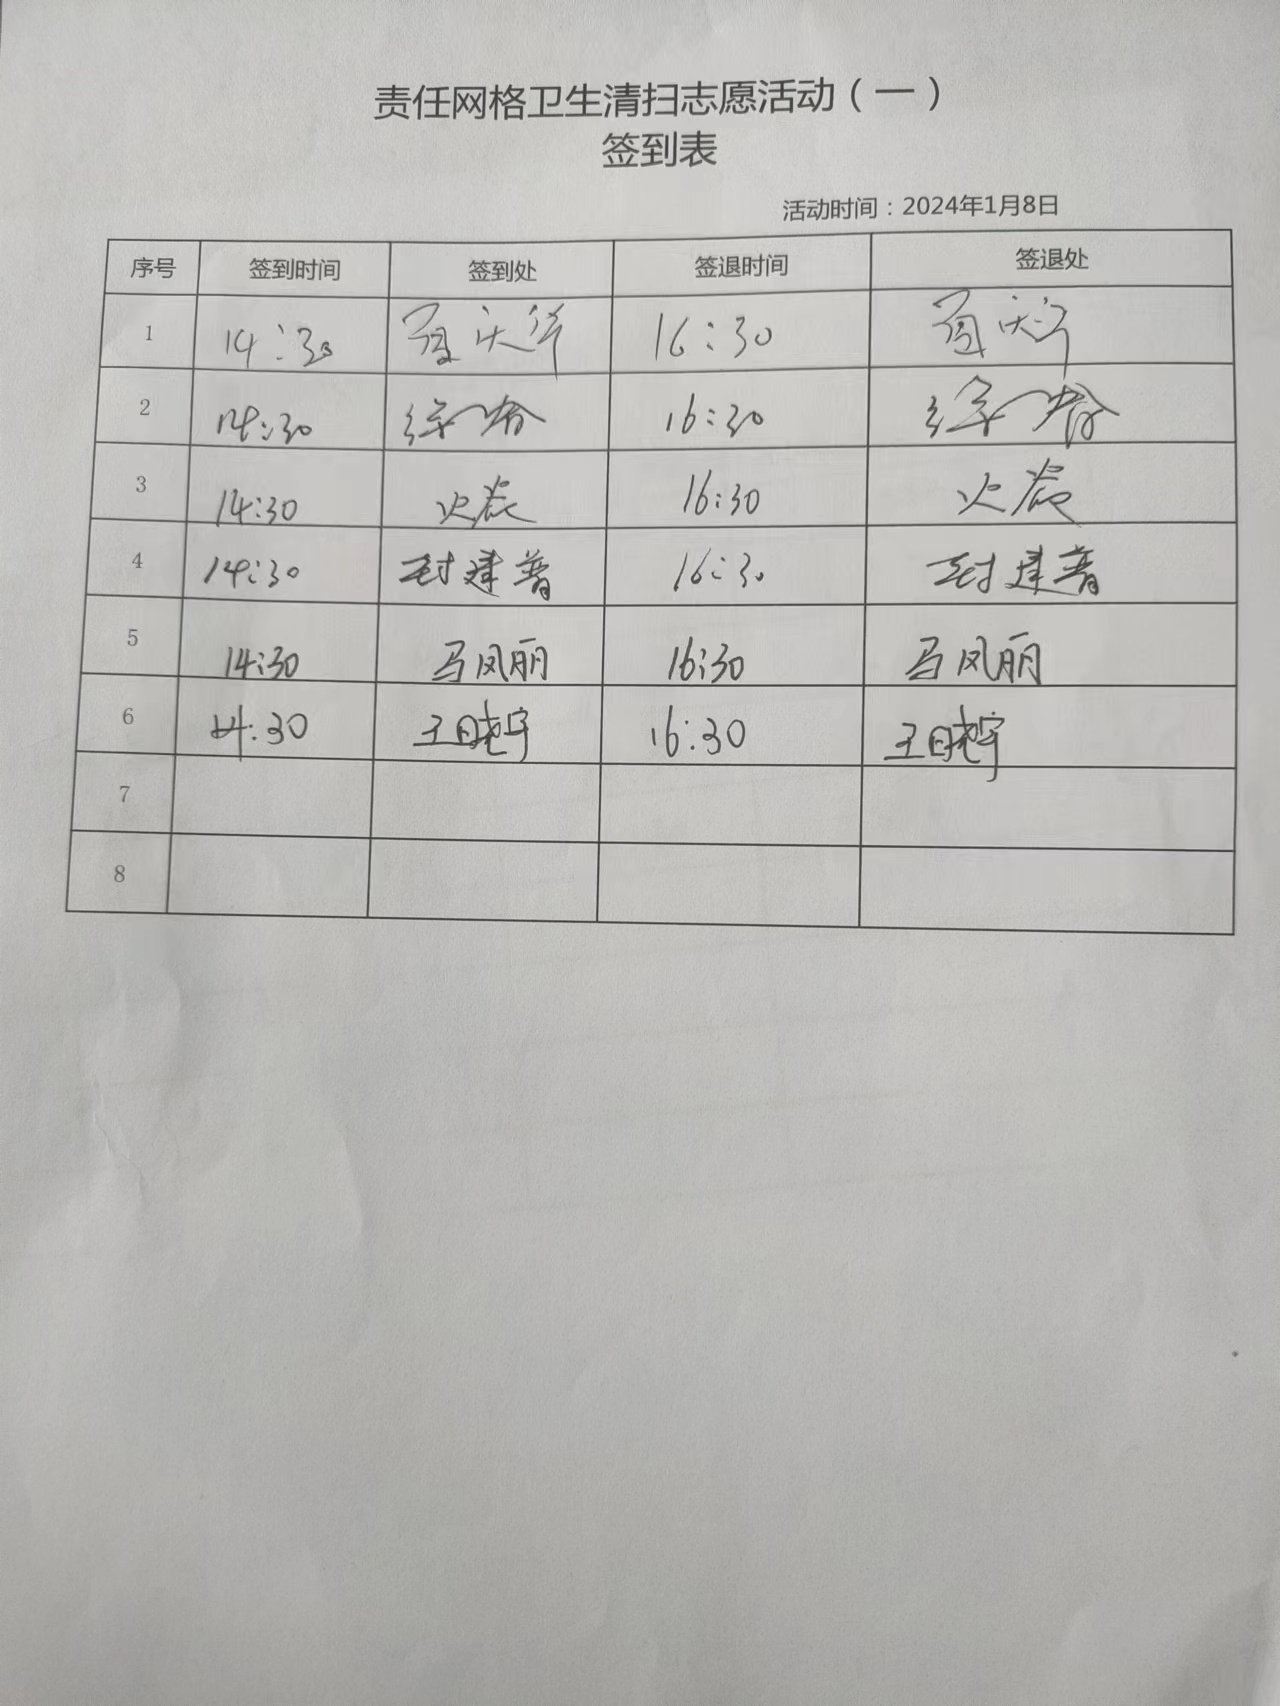 责任网格卫生清扫志愿活动（一）
签到表
活动时间：2024年1月8日
序号 签到时间 签到处 签退时间 签退处
1 14:30 16:30
2 14:30 16:30
3 14:30 16:30
4 14:30 封建普 16:30 封建普
5 14:30 马凤丽 16:30 马凤丽
6 14:30 王晓宇 16:30 王晓宇
7
8